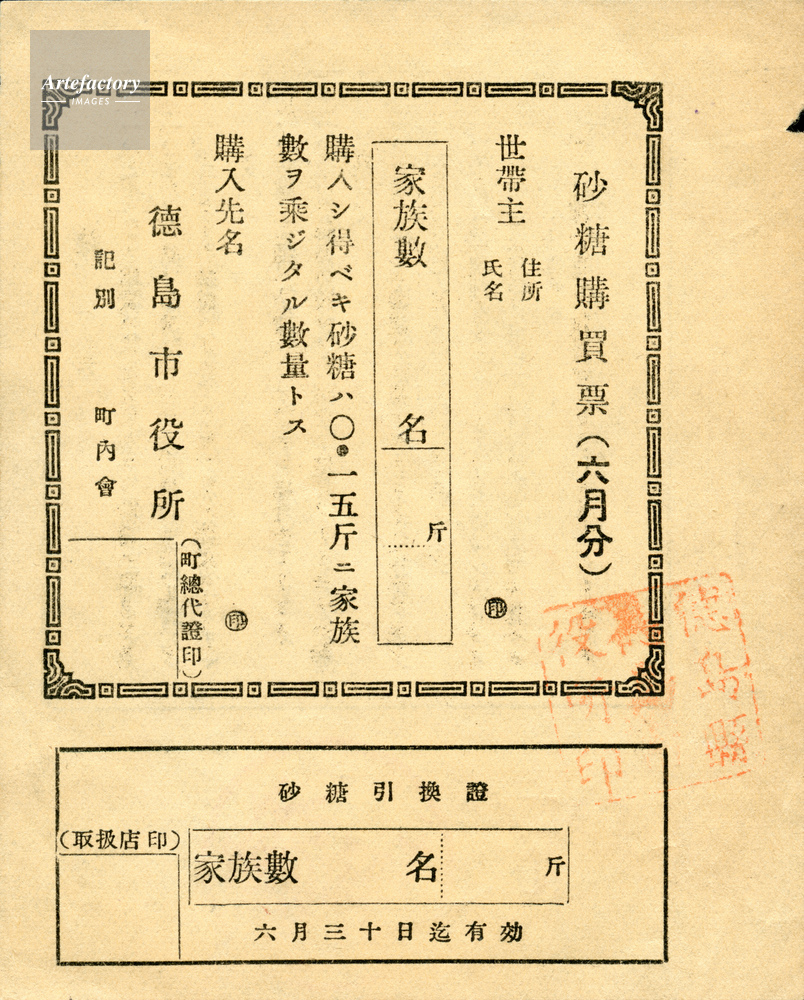 Artefactory
IMAGES
砂糖購買票（六月分）
世帶主
住所
氏名
㊞
家族數 名
斤
購入シ得ベキ砂糖ハ〇・一五斤ニ家族
數ヲ乘ジタル數量トス
購入先名
㊞
德島市役所
（町總代證印）
記別 町內會
德島縣
役所印
砂糖引換證
（取扱店印）
家族數 名 斤
六月三十日迄有効